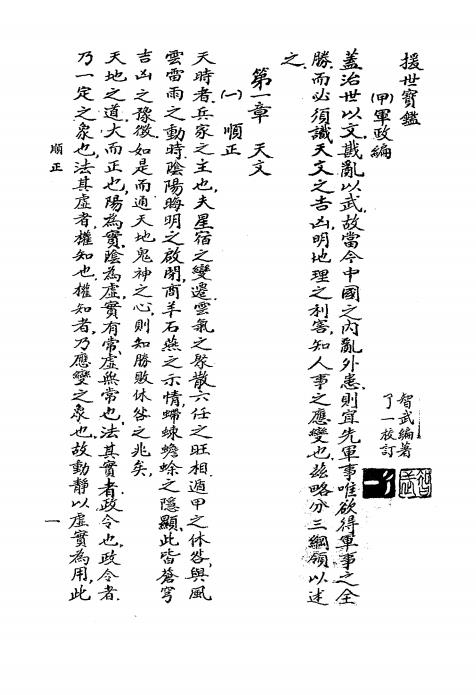 援世寶鑑
(甲)軍政編
智武編著
了一校訂
蓋治世以文,戡亂以武,故當今中國之內亂外患,則宜先軍事,唯欲得軍事之全
勝,而必須識天文之吉凶,明地理之利害,知人事之應變也,茲略分三綱領以述
之.
第一章 天文
(一) 順正
天時者,兵家之主也,夫星宿之變遷,雲氣之聚散,六任之旺相,遁甲之休咎,與風
雲雷雨之動時,陰陽晦明之啟閉,商羊石燕之示情,蠕蝀蟾蜍之隱顯,此皆蒼穹
吉凶之豫徵,如是而通天地鬼神之心,則知勝敗休咎之兆矣,
天地之道,大而正也,陽為實,陰為虛,實有常,虛無常也,法其實者,政令也,政令者
乃一定之象也,法其虛者,權知也,權知者,乃應變之象也,故動靜以虛實為用,此
順正
一